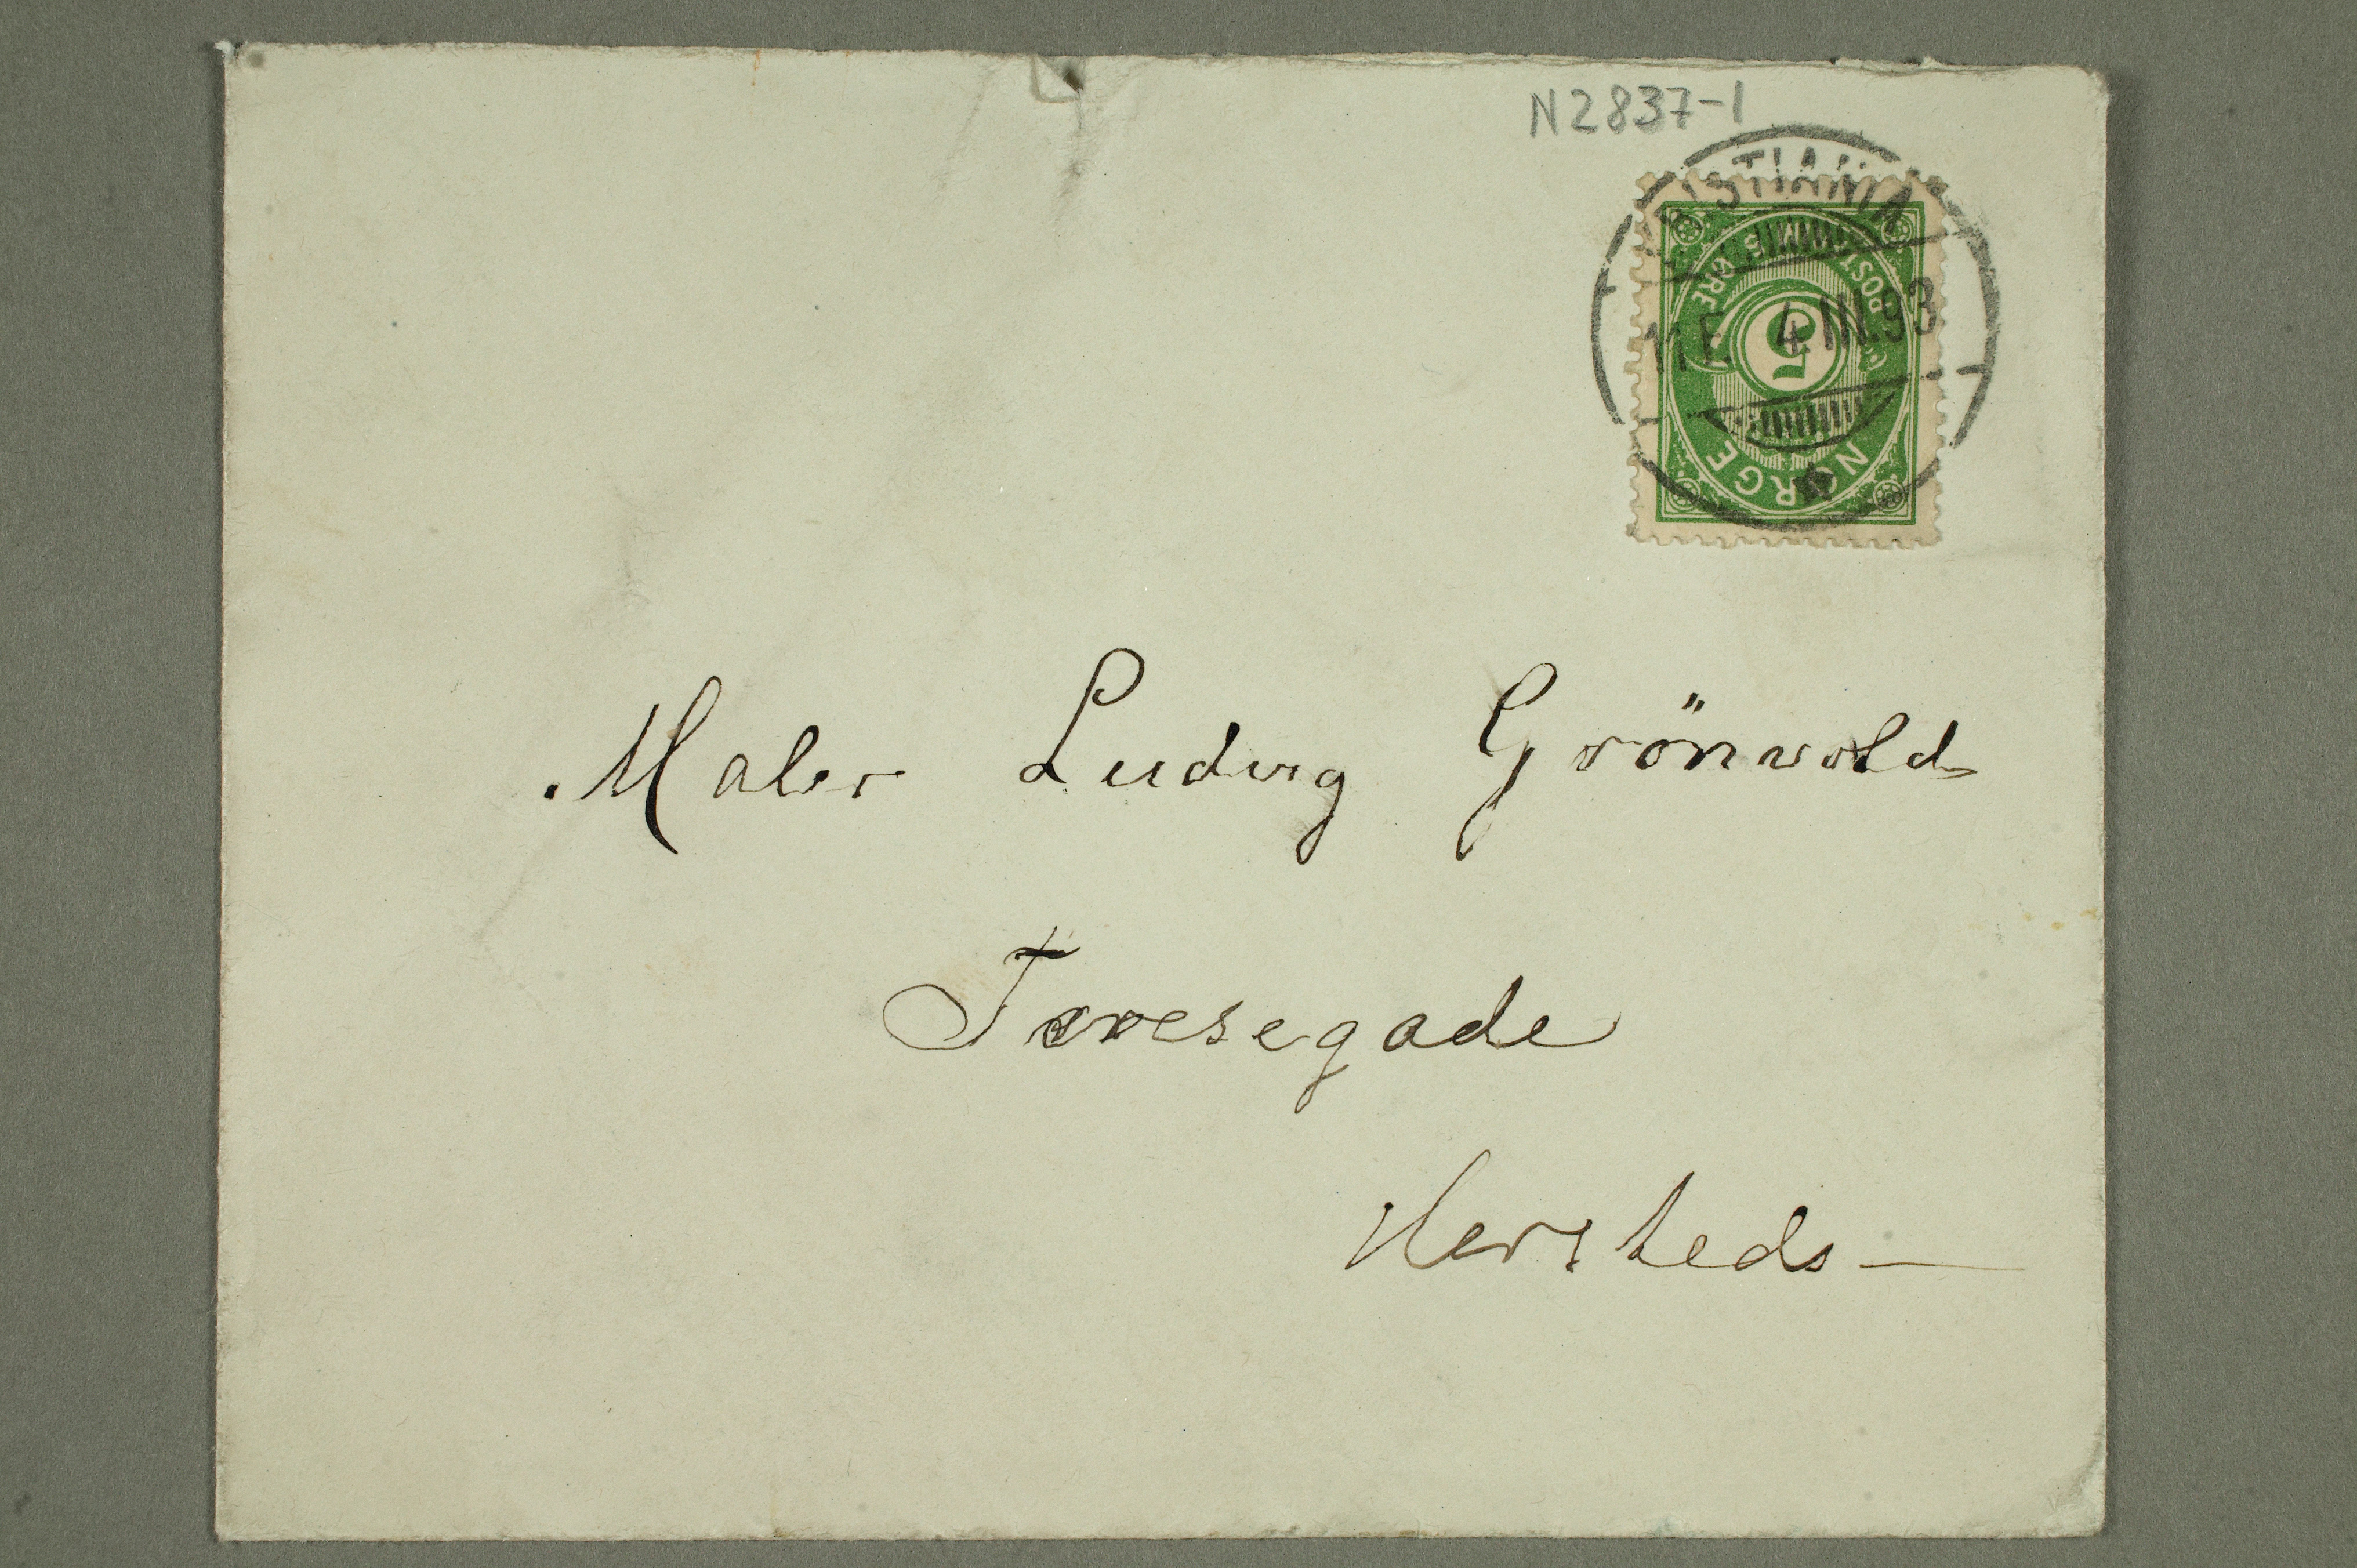 N2837-1
KRISTIANIA
11 F. 4.III.93
POSTFRIM. 5 ØRE
5
NORGE
Maler Ludvig Grönvold
Teresegade
Hersteds—